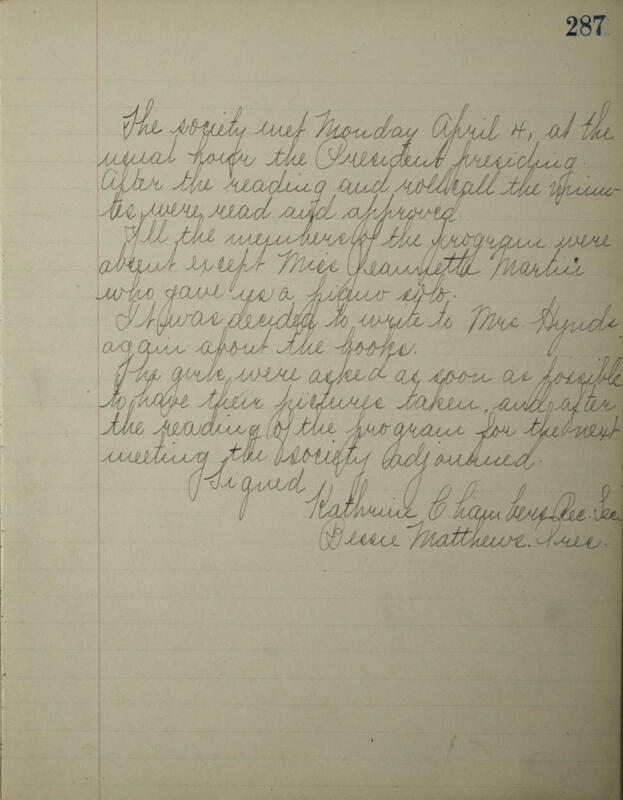 287
The society met Monday April 4, at the
usual hour the President presiding.
After the reading and roll call the minu-
tes were read and approved.
All the members of the program were
absent except Miss Jeannette Martin
who gave us a piano solo.
It was decided to write to Mrs. Hynds
again about the books.
The girls were asked as soon as possible
to have their pictures taken, and after
the reading of the program for the next
meeting the society adjourned.
Signed
Kathrine Chambers Rec. Sec.
Bessie Matthews. Pres.